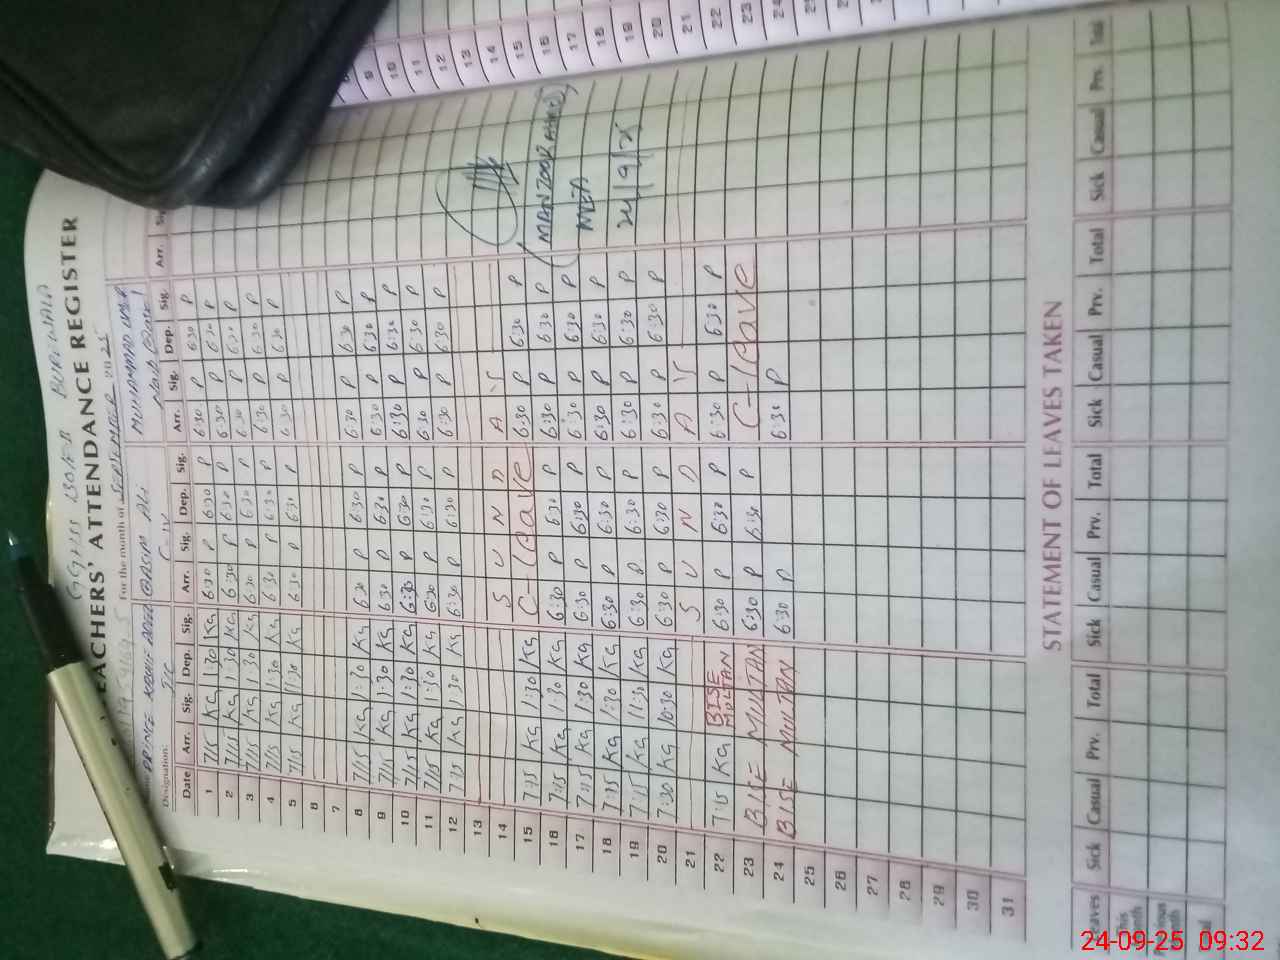 GGHSS
TEACHERS' ATTENDANCE REGISTER
For the month of SEPTEMBER 2025
QASIM ALI
MUHAMMAD UMER
Designation: C-IV
Date Arr. Sig. Dep. Sig. Arr. Sig. Dep. Sig. Arr. Sig. Dep. Sig. Arr.
1 7/15 Ka 1:30 Ka 6:30 P 6:30 P 6:30 P 6:30 P
2 7/15 Ka 1:30 Ka 6:30 P 6:30 P 6:30 P 6:30 P
3 7/15 Ka 1:30 Ka 6:30 P 6:30 P 6:30 P 6:30 P
4 7/15 Ka 1:30 Ka 6:30 P 6:30 P 6:30 P 6:30 P
5 7/15 Ka 11:30 Ka 6:30 P 6:30 P 6:30 P 6:30 P
6
7
8 7/15 Ka 1:30 Ka 6:30 P 6:30 P 6:30 P 6:30 P
9 7/15 Ka 1:30 Ka 6:30 P 6:30 P 6:30 P 6:30 P
10 7/15 Ka 1:30 Ka 6:30 P 6:30 P 6:30 P 6:30 P
11 7/15 Ka 1:30 Ka 6:30 P 6:30 P 6:30 P 6:30 P
12 7:15 Ka 1:30 Ka 6:30 P 6:30 P 6:30 P 6:30 P
13
14 S U N D A Y
15 7:15 Ka 1:30 Ka C-leave 6:30 P 6:30 P
16 7:15 Ka 1:30 Ka 6:30 P 6:30 P 6:30 P 6:30 P
17 7:15 Ka 1:30 Ka 6:30 P 6:30 P 6:30 P 6:30 P
18 7:15 Ka 1:30 Ka 6:30 P 6:30 P 6:30 P 6:30 P
19 7:15 Ka 11:30 Ka 6:30 P 6:30 P 6:30 P 6:30 P
20 7:30 Ka 10:30 Ka 6:30 P 6:30 P 6:30 P 6:30 P
21 S U N D A Y
22 7:15 Ka BISE MULTAN 6:30 P 6:30 P 6:30 P 6:30 P
23 BISE MULTAN 6:30 P 6:30 P C-leave
24 BISE MULTAN 6:30 P 6:30 P
25
26
27
28
29
30
31
(MANZOOR AHMED)
MEA
24/9/25
8
9
10
11
12
13
14
15
16
17
18
19
20
21
22
23
24
25
STATEMENT OF LEAVES TAKEN
Leaves Sick Casual Prv. Total Sick Casual Prv. Total Sick Casual Prv. Total Sick Casual Prv. Total
This Month
Previous Month
Total
24-09-25 09:32